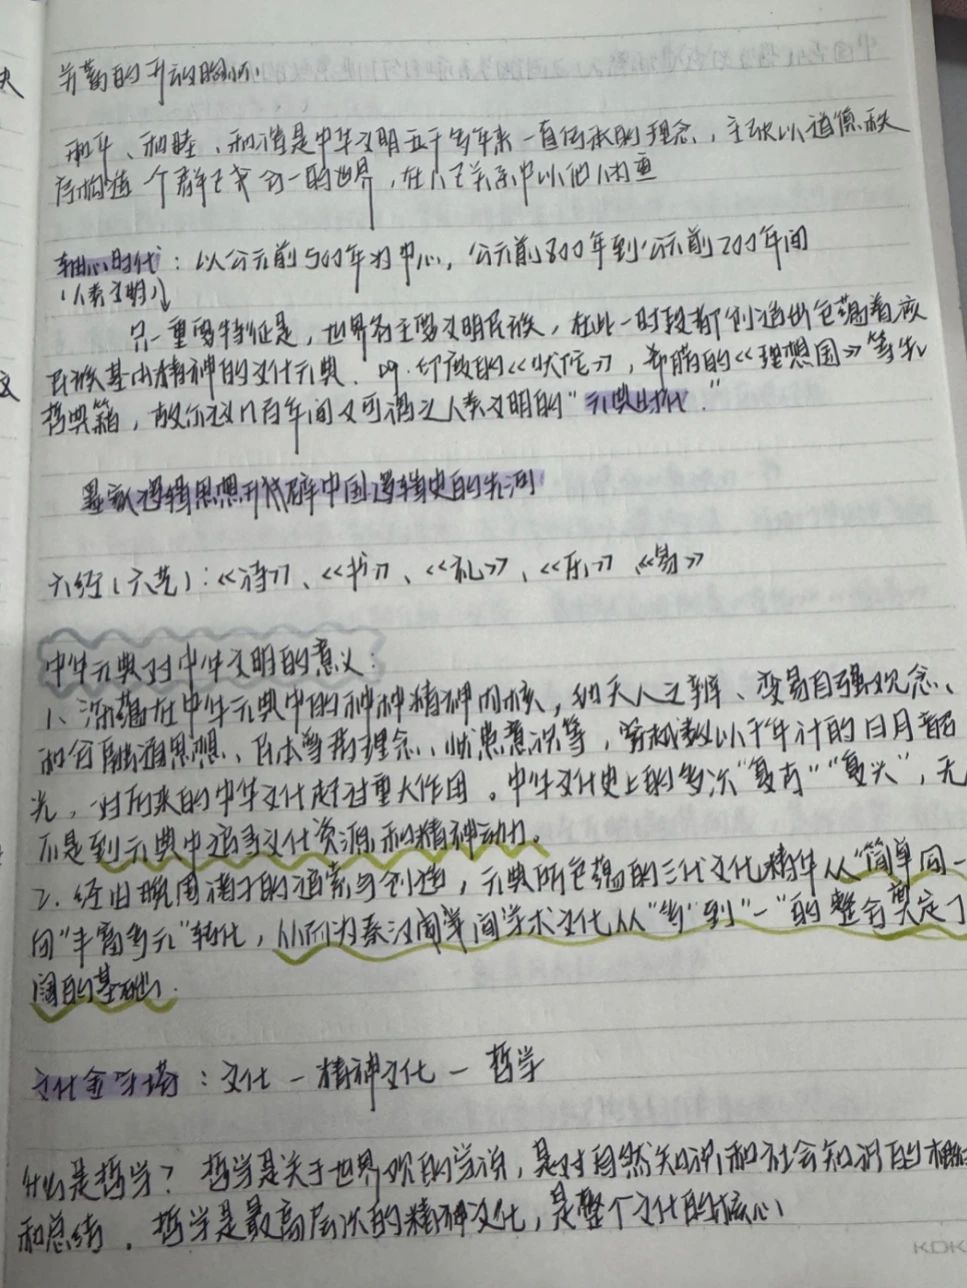 并蓄的开放胸怀。
和平、和睦、和谐是中华文明五千多年来一直传承的理念，主张以道德秩
序构造一个群己合一的世界，在人己关系中以他人为重
轴心时代：以公元前500年为中心，公元前800年到公元前200年间
（人类文明）
另一重要特征是，世界各主要文明民族，在此一时段都创造出包蕴着该
民族基本精神的文化元典．如：印度的《吠陀》，希腊的《理想国》等先
哲典籍，故你这几百年间又可谓之人类文明的“元典时代．”
墨家逻辑思想开辟中国逻辑史的先河
六经（六艺）：《诗》、《书》、《礼》、《乐》《易》
中华元典对中华文明的意义：
1、深蕴在中华元典中的种种精神内核，如天人之辨、变易自强观念、
和合融通思想、民本尊我理念、忧患意识等，穿越数以千年计的日月韶
光，对后来的中华文化起过重大作用。中华文化史上的多次“复古”“复兴”，无
不是到元典中追寻文化资源和精神动力。
2．经由晚周诸子的通素与创造，元典所包蕴的三代文化精华从“简单同一
向“丰富多元”转化，从而为秦汉间学术文化从“多”到“一”的整合奠定了
阔的基础．
文化金字塔：文化－精神文化－哲学
什么是哲学？哲学是关于世界观的学说，是对自然知识和社会知识的概括
和总结．哲学是最高层次的精神文化，是整个文化的核心
KDK